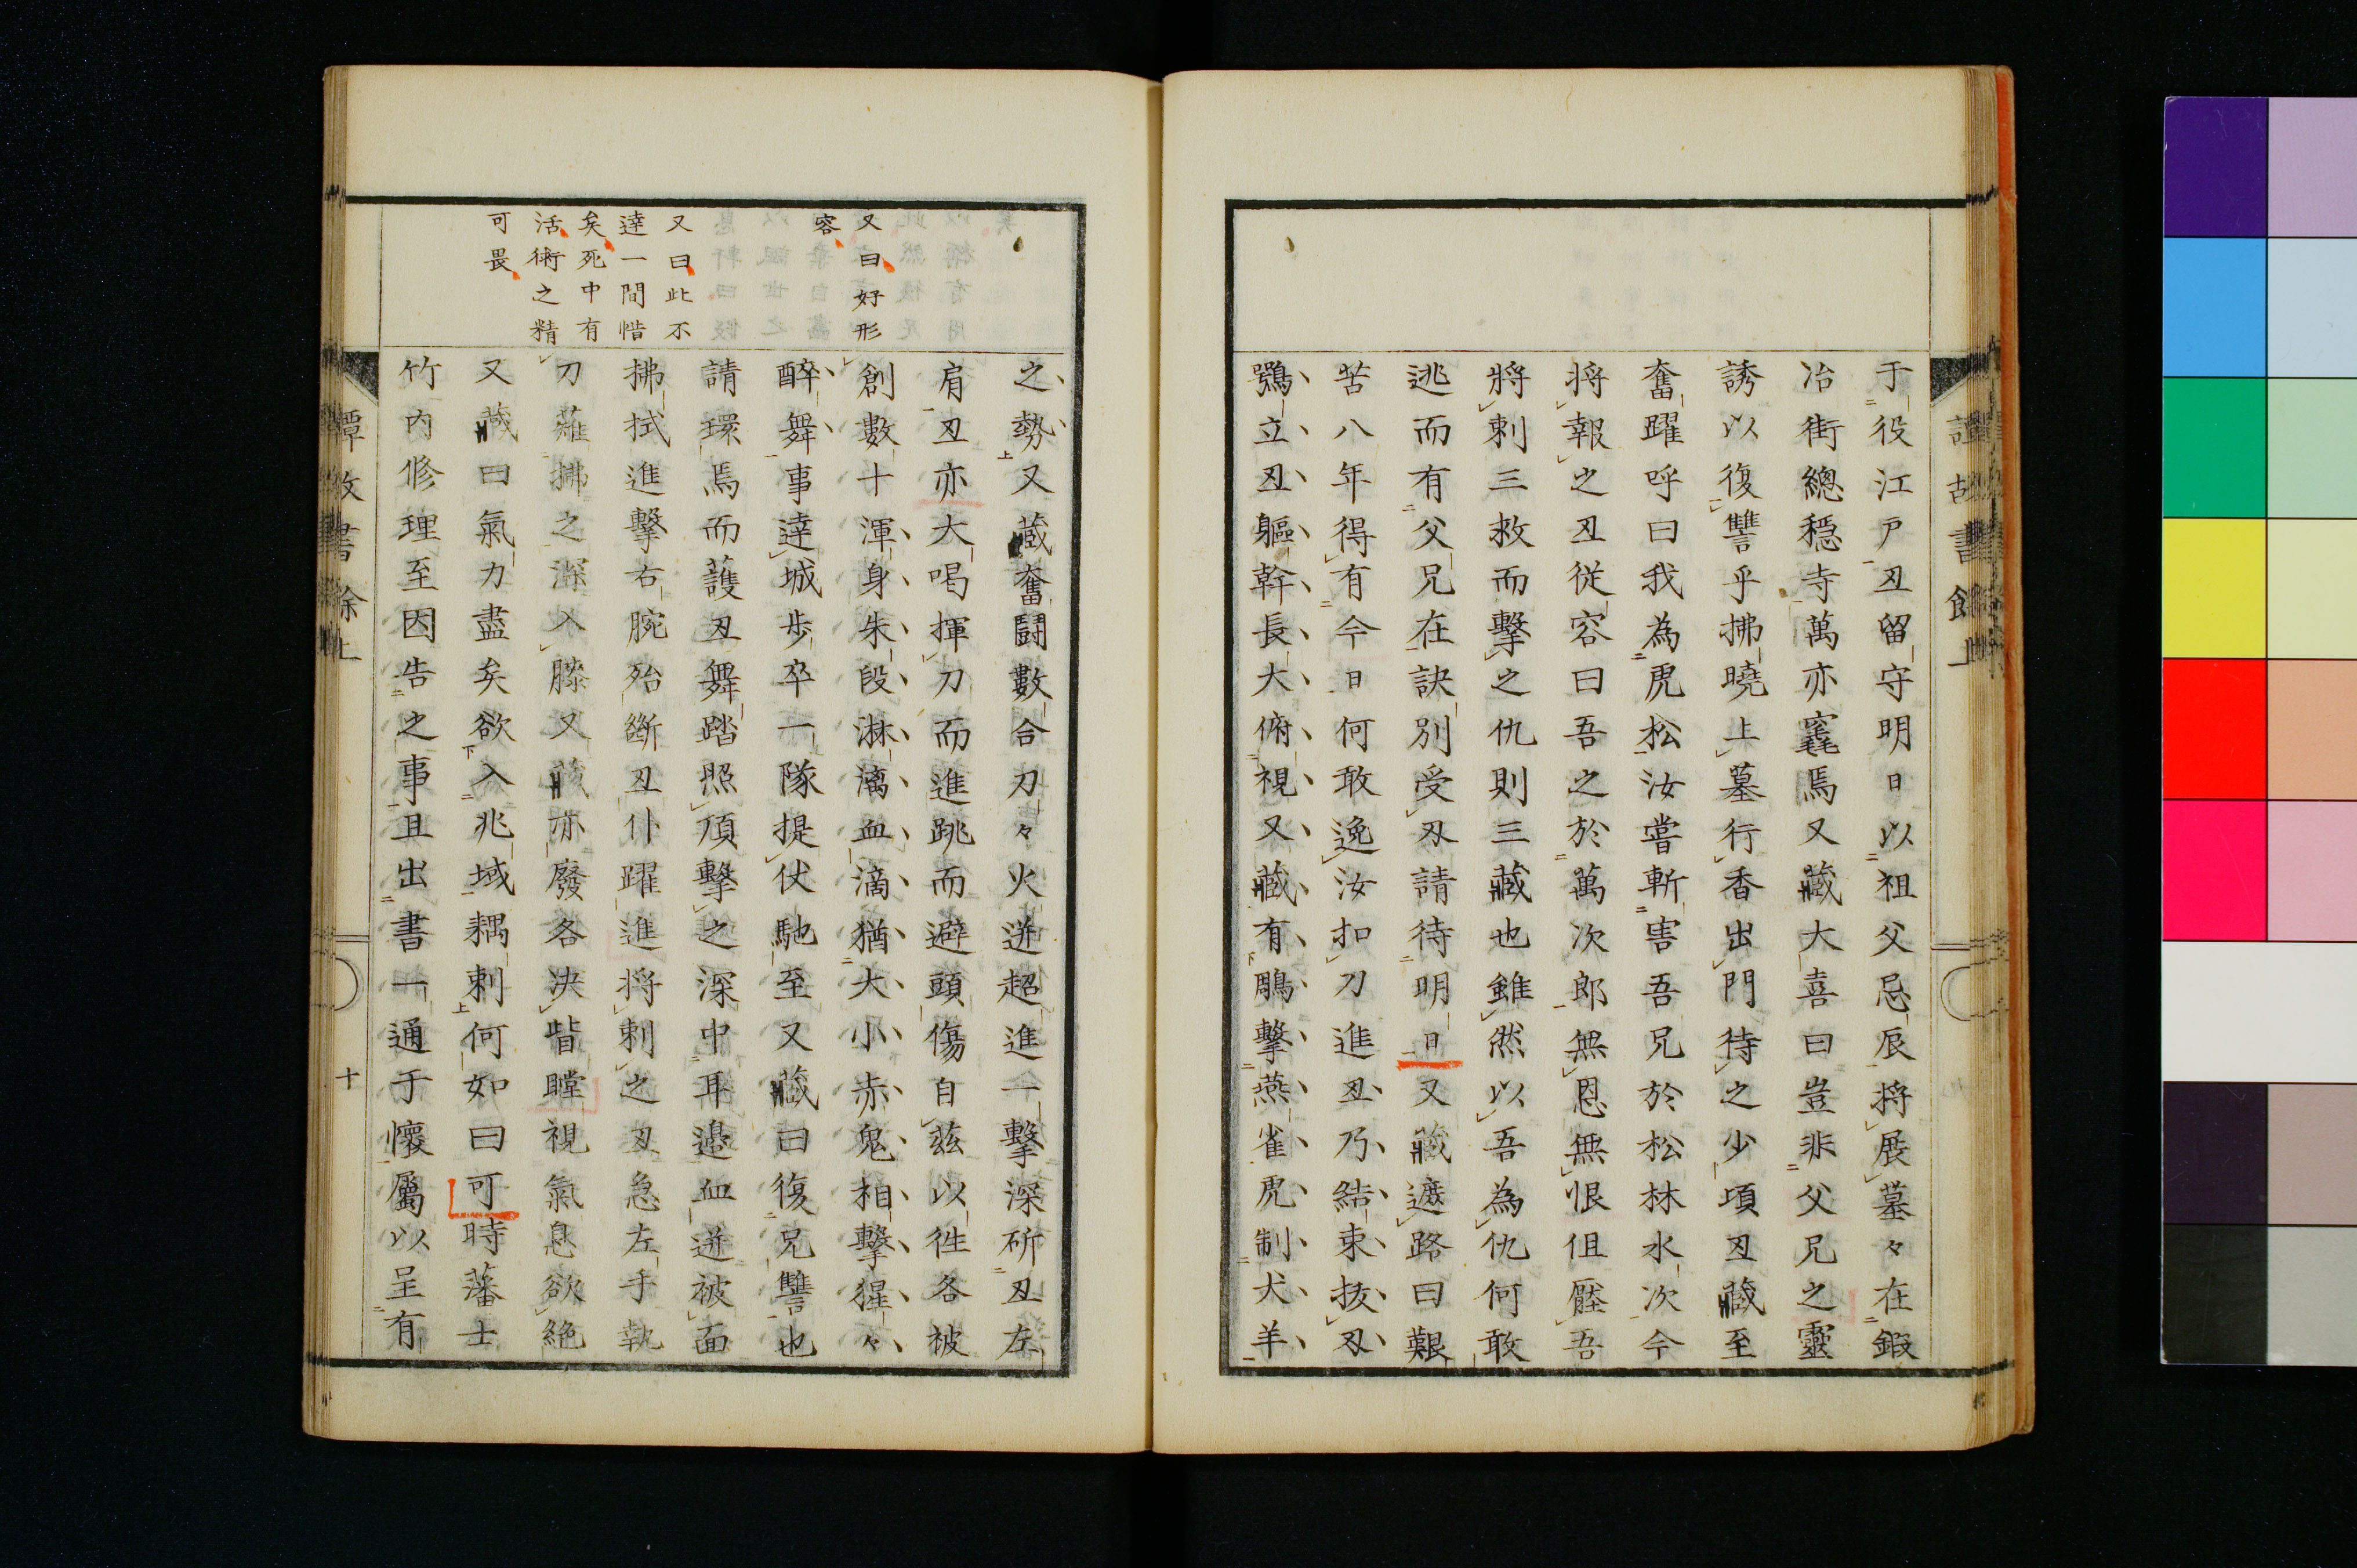 于役江戸丑留守明日以祖父忌辰将展墓々在鍛
冶街總穏寺萬亦窆焉又藏大喜曰豈非父兄之靈
誘以復讐乎拂曉上墓行香出門待之少頃丑藏至
奮躍呼曰我為虎松汝嘗斬害吾兄於松林水次今
将報之丑従容曰吾之於萬次郎無恩無恨但歴吾
將刺三救而擊之仇則三藏也雖然以吾為仇何敢
逃而有父兄在訣別受刄請待明日又藏遮路曰艱
苦八年得有今日何敢逸汝扣刀進丑乃結束抜刄
鶚立丑軀幹長大俯視又藏有鵰擊燕雀虎制犬羊
又曰好形
容
又曰此不
達一間惜
矣死中有
活術之精
可畏
之勢又藏奮闘數合刀々火迸超進一擊深斫丑左
肩丑亦大喝揮刀而進跳而避頭傷自茲以徃各被
創數十渾身朱殷淋漓血滴猶大小赤鬼相擊猩々
醉舞事達城歩卒一隊提仗馳至又藏曰復兄讐也
請環焉而護丑舞踏照頂擊之深中耳邉血迸被面
拂拭進擊右腕殆斷丑仆躍進将刺之丑急左手執
刀薙拂之深入膝又藏亦廢各决眥瞠視氣息欲絶
又藏曰氣力盡矣欲入兆域耦刺何如曰可時藩士
竹内修理至因告之事且出書一通于懷屬以呈有
十